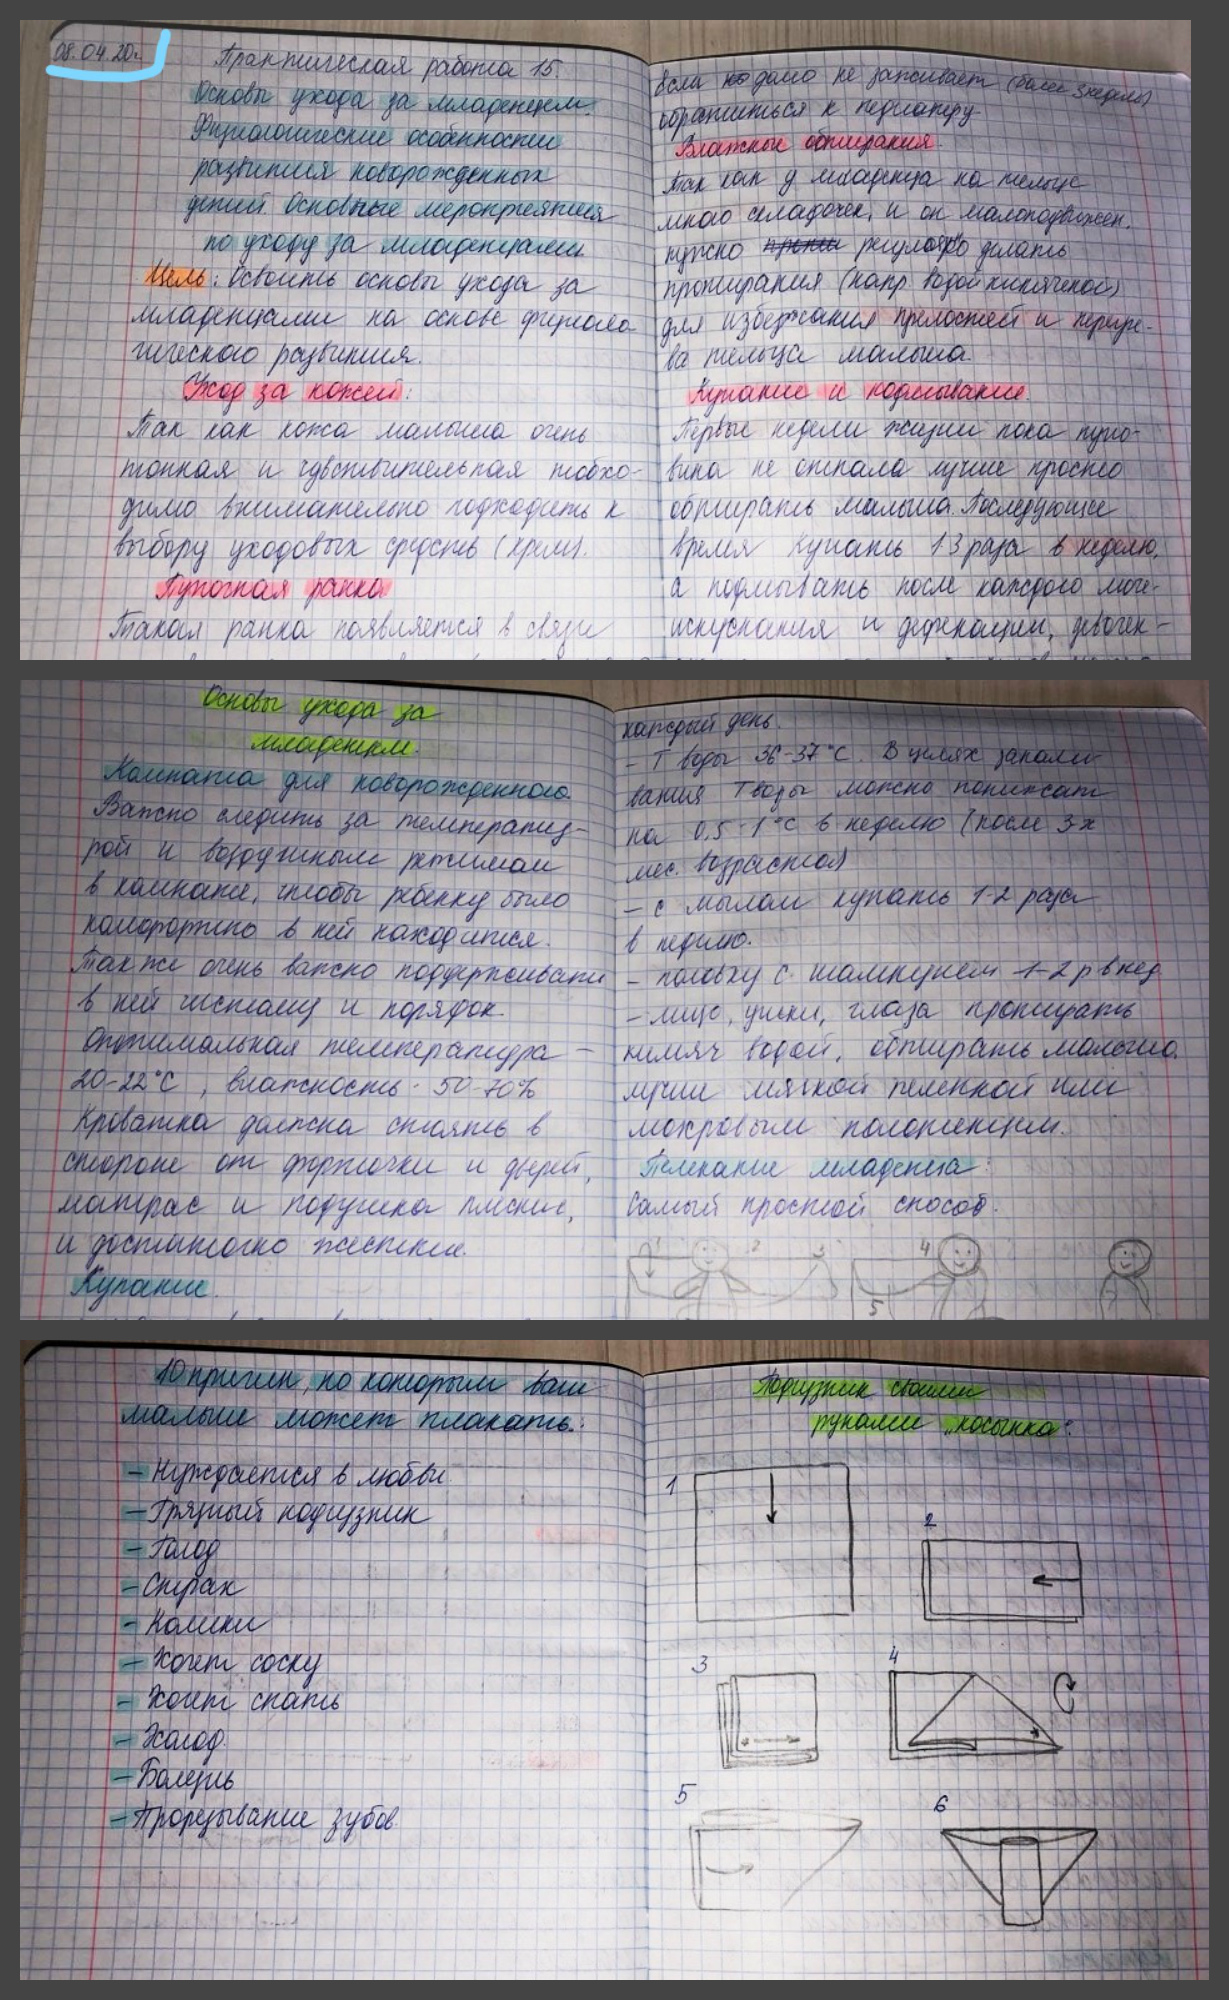 08.04.20г.
Практическая работа 15.
Основы ухода за младенцем.
Физиологические особенности
развития новорожденных
детей. Основные мероприятия
по уходу за младенцами.
Цель: Освоить основы ухода за
младенцами на основе физиоло
гического развития.
Уход за кожей:
Так как кожа малыша очень
тонкая и чувствительная необхо-
димо внимательно подходить к
выбору уходовых средств (крем).
Пупочная ранка
Такая ранка появляется в связи
Если долго не заживает (более 3 недель)
обратиться к педиатру.
Влажные обтирания.
Так как у младенца на тельце
много складочек, и он малоподвижен.
нужно регулярно делать
протирания (напр. водой кипяченой)
для избежания прелостей и перегре-
ва тельца малыша.
Купание и подмывание.
Первые недели жизни пока пупо-
вина не отпала лучше просто
обтирать малыша. Последующее
время купать 1-3 раза в неделю,
а подмывать после каждого моче-
испускания и дефекации, девочек -
Основы ухода за
младенцем.
Комната для новорожденного.
Важно следить за температу-
рой и воздушным режимом
в комнате, чтобы ребенку было
комфортно в ней находится.
Также очень важно поддерживать
в ней чистоту и порядок.
Оптимальная температура -
20-22°С, влажность - 50-70%
Кроватка должна стоять в
стороне от форточки и дверей,
матрас и подушка плоские,
и достаточно жесткие.
Купание.
каждый день.
- Т воды 36-37°С. В целях закали
вания Т воды можно понижать
на 0,5-1°С в неделю (после 3-х
мес. возраста)
- с мылом купать 1-2 раза
в неделю.
- головку с шампунем 1-2 р в нед
- лицо, ушки, глаза протирать
кипяч водой, обтирать малыша
лучше мягкой пеленкой или
махровым полотенцем.
Пеленание младенца:
Самый простой способ.
1 2 3 4
5
10 причин, по которым ваш
малыш может плакать:
- Нуждается в любви
- Грязный подгузник
- Голод
- Страх
- Колики
- Хочет соску
- Хочет спать
- Холод
- Болезнь
- Прорезывание зубов
Подгузник своими
руками „косынка":
1
2
3
4
5
6